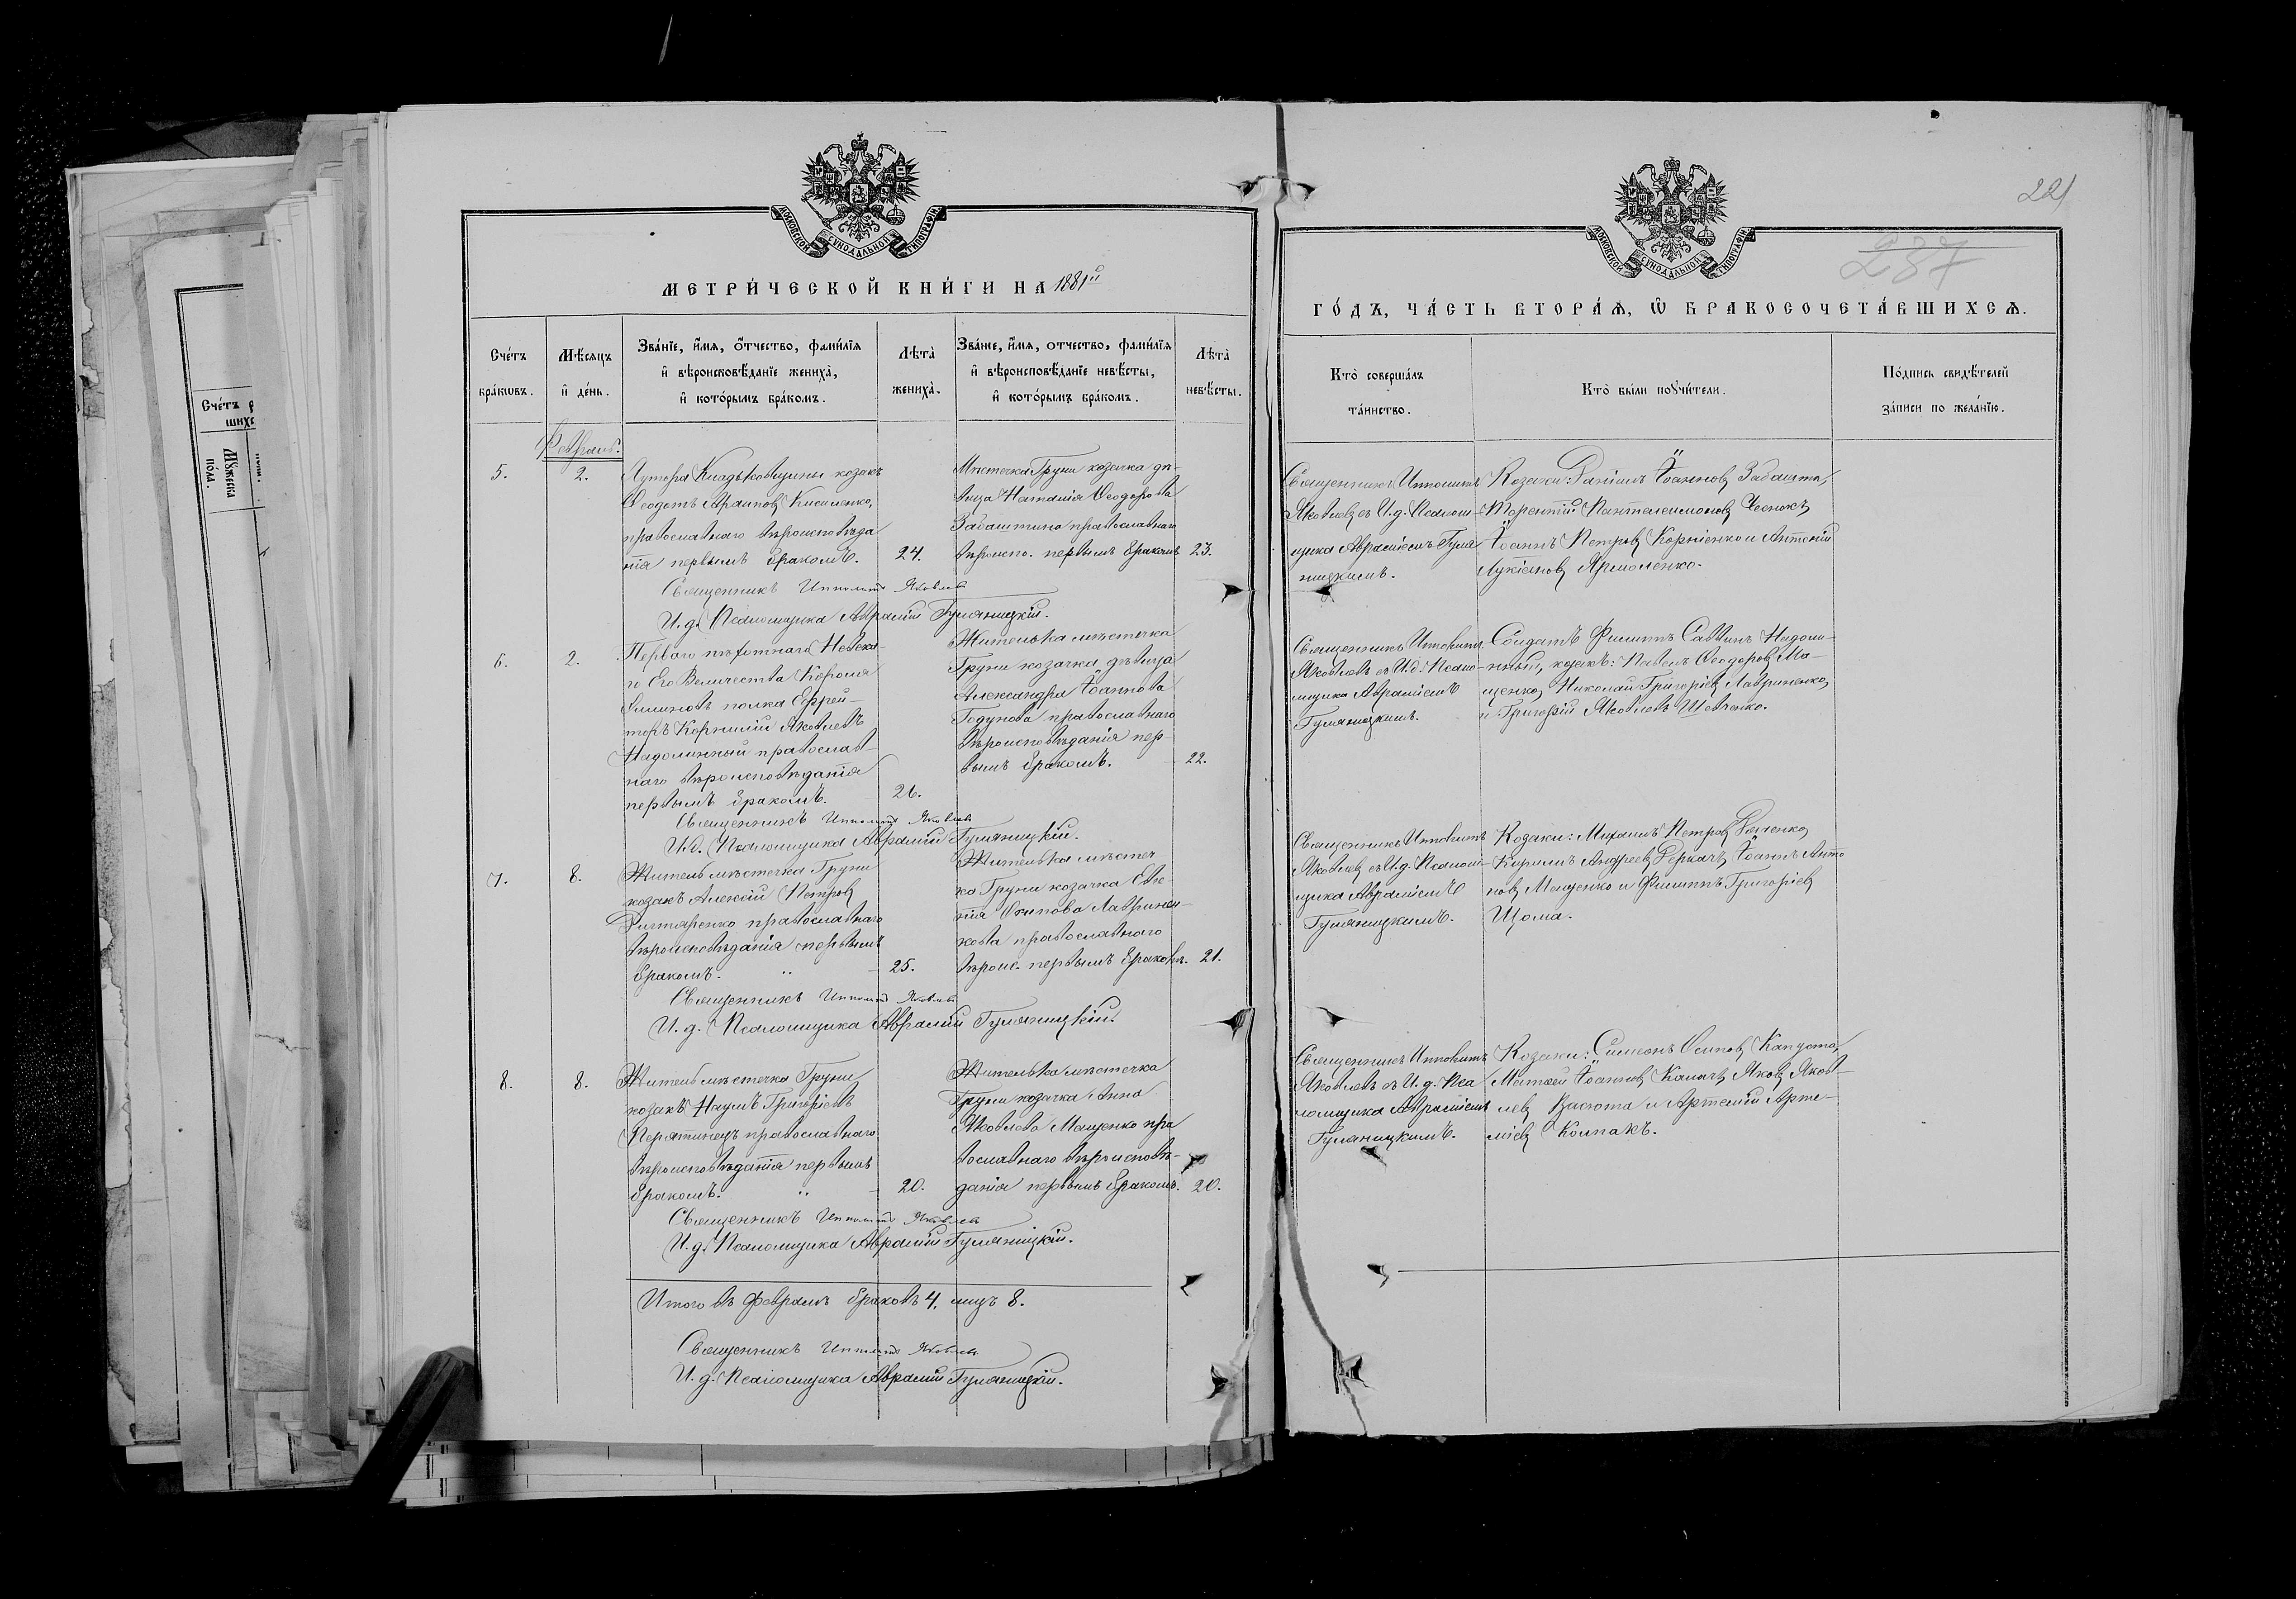 МОСКОВСКОЙ СУНОДАЛЬНОЙ ТИПОГРАФІИ
МЕТРИ́ЧЕСКОЙ КНИ́ГИ НА 1881й
Сче́тъ бра́ковъ.
Мѣ́сяцъ и҆ де́нь.
Зва́нїе, и҆́мя, ѻ҆́тчество, фами́лїя
и҆ вѣроисповѣ́данїе жениха̀,
и҆ кото́рымъ бра́комъ.
Лѣ́та̀ жениха̀.
Зва́нїе, и҆́мя, отчество, фами́лїя
и҆ вѣроисповѣ́данїе невѣ́сты,
и҆ кото́рымъ бра́комъ.
Лѣ́та̀ невѣ́сты.
Февраль.
5.
2.
Хутора Кладьковщины козакъ
Ѳеодотъ Кисиленко,
православнаго вѣроисповѣда
нія первымъ бракомъ.
24.
Мѣстечка Груни козачка дѣ-
вица Наталія Ѳеодорова
Забаштина православнаго
вѣроиспо. первымъ бракомъ
23.
Священникъ Ипполитъ Яковлевъ
И. д. Псаломщика Аврамій Гуляницкій.
6.
2.
Перваго пѣхотнаго Невска-
го Его Величества Короля
Еллиновъ полка Ефрей-
торъ Корнилій Яковлевъ
Надолинный православ-
наго вѣроисповѣданія
первымъ бракомъ.
26.
Жителька мѣстечка
Груни козачка дѣвица
Александра Іоаннова
Годунова православнаго
вѣроисповѣданія пер-
вымъ бракомъ.
22.
Священникъ Ипполитъ Яковлевъ
И.д. Псаломщика Аврамій Гуляницкій.
7.
8.
Житель мѣстечка Груни
козакъ Алексій Петровъ
православнаго
вѣроисповѣданія первымъ
бракомъ. „
25.
Жителька мѣстеч
ка Груни козачка Евге-
нія Осипова Лавринен-
кова православнаго
вѣроис. первымъ бракомъ.
21.
Священникъ Ипполитъ Яковлевъ
И. д. Псаломщика Аврамій Гуляницкій.
8.
8.
Житель мѣстечка Груни
козакъ Наумъ Григоріевъ
Перятинецъ православнаго
вѣроисповѣданія первымъ
бракомъ. „
20.
Жителька мѣстечка
Груни козачка Анна
Яковлева Мащенко пра
вославнаго вѣроисповѣ-
данія первымъ бракомъ.
20.
Священникъ Ипполитъ Яковлевъ
И. д. Псаломщика Аврамій Гуляницкій.
Итого въ февралѣ браковъ 4, лицъ 8.
Священникъ Ипполитъ Яковлевъ
И. д. Псаломщика Аврамій Гуляницкій.
221
237
МОСКОВСКОЙ СУНОДАЛЬНОЙ ТИПОГРАФІИ
ГО́ДЪ, ЧА́СТЬ ВТОРА́Я, Ѡ҆ БРАКОСОЧЕТА́ВШИХСЯ.
Кто̀ соверша́лъ
та́инство.
Кто̀ были поꙋчи́тели.
По́дпись свидѣ́телей
за́писи по жела́нїю.
Священникъ Ипполитъ
Яковлевъ съ И.д. Псалом-
щика Аврамiемъ Гуля
ницкимъ.
Козаки: Даніилъ Іоанновъ Забашта,
Терентій Пантелеимоновъ Чеснокъ,
Іоаннъ Петровъ Корніенко и Антоній
Лукіановъ Ярмоленко.
Священникъ Ипполитъ
Яковлевъ съ И.д. Псало-
мщика Аврамiемъ
Гуляницкимъ.
Солдатъ Филиппъ Саввинъ Надоли-
нный, козакъ: Павелъ Ѳеодоровъ Ма-
щенко, Николай Григоріевъ Лавриненко,
и Григорій Яковлевъ Шевченко.
Священникъ Ипполитъ
Яковлевъ съ И.д. Псалом-
щика Аврамiемъ
Гуляницкимъ.
Козаки: Михаилъ Петровъ
Кириллъ Андреевъ Деркачъ, Іоаннъ Анто
новъ Мащенко и Филиппъ Григоріевъ
Щома.
Священникъ Ипполитъ
Яковлевъ съ И. д. Пса
ломщика Аврамiемъ
Гуляницкимъ.
Козаки: Симеонъ Осиповъ Капуста,
Матвей Іоанновъ Калачъ, Яковъ Яков-
левъ и Артемій Арте-
міевъ Колпакъ.